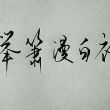 举箫漫白衣